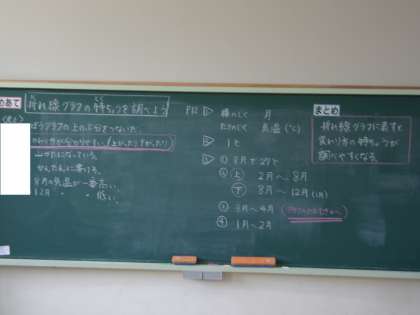 めあて
折れ線グラフの特ちょうを調べよう
ぼうグラフの上の部分をつないだ。
かわり方が分かりやすい。(上がったり下がったり)
山がたになっている。
かんたんに書ける。
8月の気温が一番高い。
12月 〃 〃 低い。
P12 ①
横のじく 月
たてのじく 気温(℃)
② 1℃
8月で27℃
上 2月〜8月
下 8月〜12月(1月)
3月〜4月
1月〜2月
まとめ
折れ線グラフに表すと
変わり方の特ちょうが
調べやすくなる。